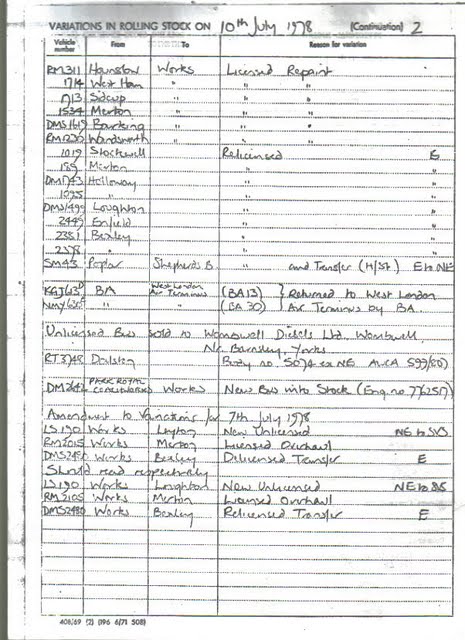 VARIATIONS IN ROLLING STOCK ON 10th July 1978 (Continuation) 2
Vehicle number From To Reason for variation
RM311 Hounslow Works Licensed Repaint
1714 West Ham " " "
1713 Sidcup " " "
1534 Merton " " "
DMS1619 Barking " " "
RM1230 Wandsworth " " "
1019 Stockwell Relicensed E
189 Merton " "
DM1743 Holloway " "
" " "
DMS1499 Loughton " "
2449 Enfield " "
2351 Bexley " "
2378 " " "
SM45 Poplar Shepherds B. " and Transfer (H/St.) E to NE
BA West London Air Terminus (BA13) } Returned to West London
" " (BA30) } Air Terminus by BA.
Unlicensed Bus sold to Wombwell Diesels Ltd, Wombwell,
Nr. Barnsley, Yorks
RT3748 Dalston Body no. 5074 ex NE
DM2647 PARK ROYAL COACHWORKS Works New Bus into Stock
Amendment to Variations for 7th July 1978
LS190 Works Leyton New Unlicensed
RM2015 Works Merton Licensed Overhaul
DMS2480 Works Bexley Delicensed Transfer E
Should read respectively
LS190 Works Loughton New Unlicensed
RM2105 Works Merton Licensed Overhaul
DMS2480 Works Bexley Relicensed Transfer E
408/69 (2) (196 6/71 508)